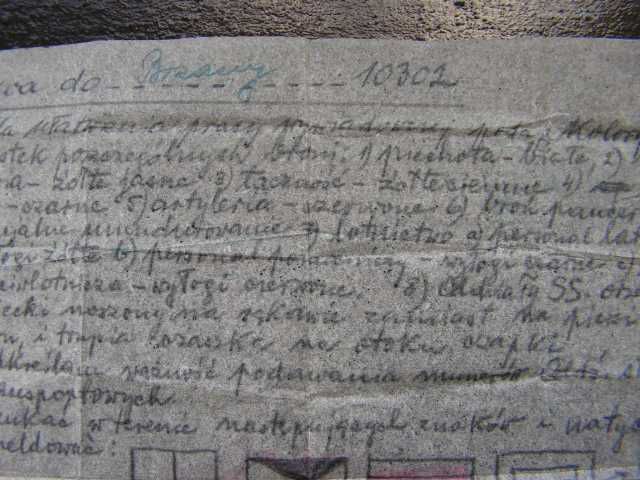 wa do Brzawy 10302
la ułatwienia pracy podaję kolory
stek poszczególnych broni: 1) piechota - białe, 2)
- żółte jasne 3) łączność - żółte ciemne 4)
- czarne 5) artyleria - czerwone 6) broń pancer
jalne umundurowanie 7) lotnictwo a) personel lat
łogi żółte b) personel pomocniczy - wyłogi czarne c)
wlotnicza - wyłogi czerwone. 8) Oddziały SS. orz
ecki noszony na rękawie zamiast na piersi
i trupia czaszka na otoku czapki
dkreślam ważność podawania numerów
ansportowych.
ukać w terenie następujących znaków i natyc
meldować: